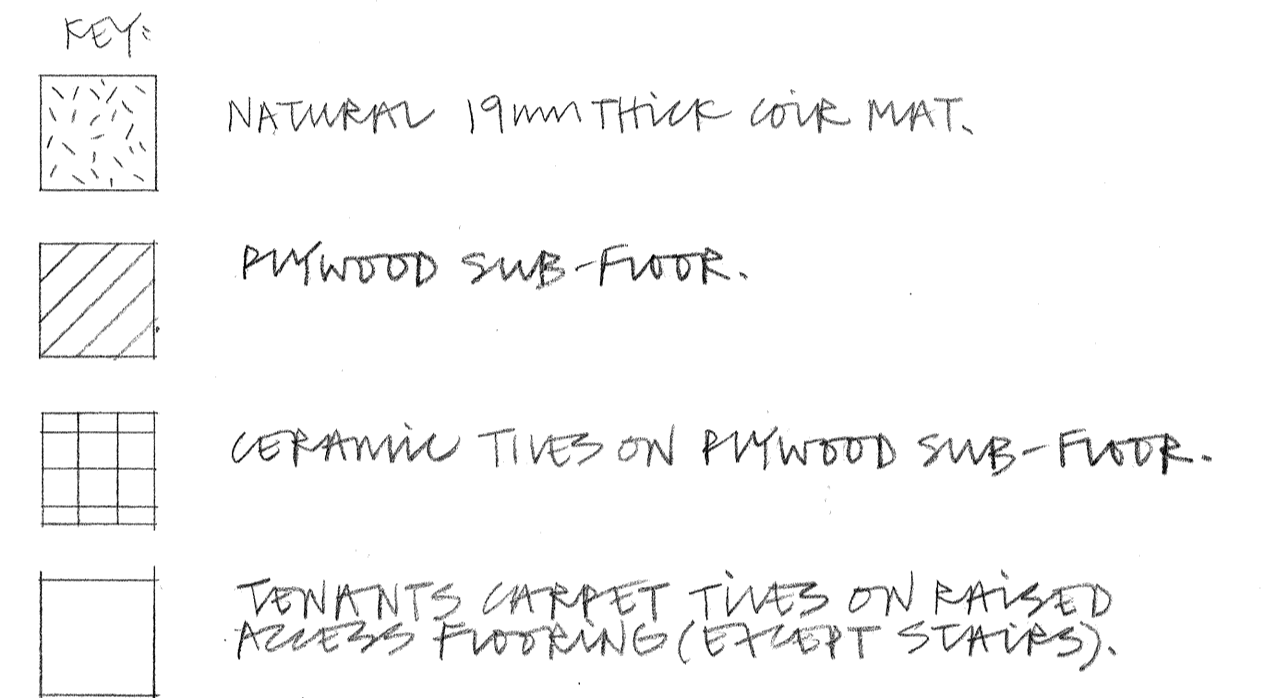 KEY:
NATURAL 19mm THICK COIR MAT.
PLYWOOD SUB-FLOOR.
CERAMIC TILES ON PLYWOOD SUB-FLOOR.
TENANTS CARPET TILES ON RAISED
ACCESS FLOORING (EXCEPT STAIRS).